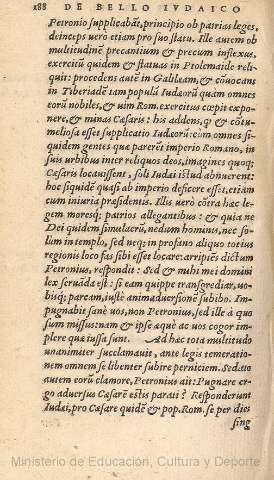 188 DE BELLO IVDAICO
Petronio supplicabāt, principio ob patrias leges,
deinceps vero etiam pro suo statu. Ille autem ob
multitudinē precantium & precum inflexus,
exercitū quidem & statuas in Ptolemaide reli-
quit: procedens autē in Galilæam, & cōuocans
in Tyberiadē tam populū Iudæorū quam omnes
eorū nobiles, & vim Rom. exercitus cœpit expo-
nere, & minas Cæsaris: his addens, q & cōtu-
meliosa esset supplicatio Iudæorū: cum omnes si-
quidem gentes quæ parerēt imperio Romano, in
suis vrbibus inter reliquos deos, imagines quoq;
Cæsaris locauissent, soli Iudæi istud abnuerent:
hoc siquidē quasi ab imperio deficere esset, etiam
cum iniuria præsidentis. Illis verò cōtra hæc le-
gem moresq; patrios allegantibus: & quia ne
Dei quidem simulacrū, nedum hominis, nec so-
lum in templo, sed neq; in profano aliquo totius
regionis loco fas sibi esset locare: arripiēs dictum
Petronius, respondit: Sed & mihi mei domini
lex seruāda est: si eam quippe transgrediar, vo-
bisq; parcam, iustè animaduersione subibo. Im-
pugnabit sanè vos, non Petronius, sed ille à quo
sum missus: nam & ipse æquè ac vos cogor im-
plere quæ iussa sunt. Ad hæc tota multitudo
vnanimiter succlamauit, ante legis temeratio-
nem omnem se libenter subire perniciem. Sedato
autem eorū clamore, Petronius ait: Pugnare er-
go aduersus Cæsarē estis parati? Responderunt
Iudæi, pro Cæsare quidē & pop. Rom. se per dies
sing
Ministerio de Educación, Cultura y Deporte